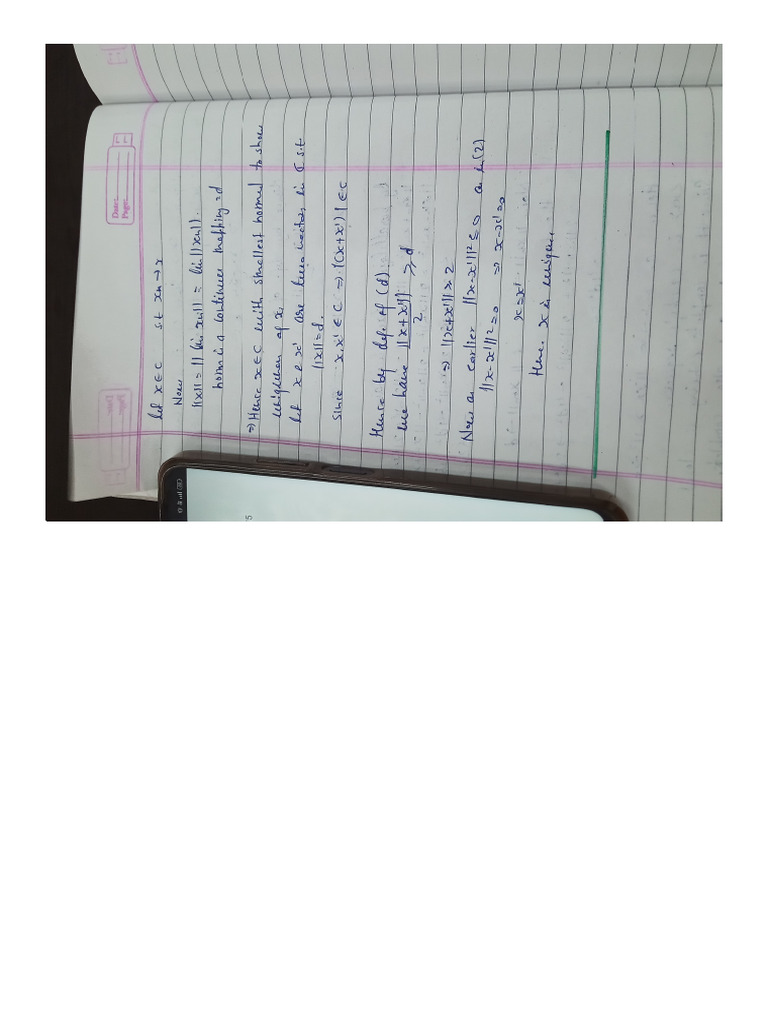 Date:
Page:
let x∈C s.t xn→x
Now
||x|| = || lim xn|| = lim||xn||.
norm is a continuous mapping = d
⇒) Hence x∈C with smallest normed to show
uniqueness of x.
let x & x' are two vectors in s.t
||x|| = d.
Since x, x' ∈ C ⇒ (x+x') ∈ C
Hence by def. of (d)
we have ||x+x'||/2 ≥ d
⇒ ||x+x'|| ≥ 2
Now as earlier ||x-x'||² ≤ 0 as in (2)
||x-x'||² = 0 ⇒ x-x' = 0
x = x'
Hence x is unique.
5